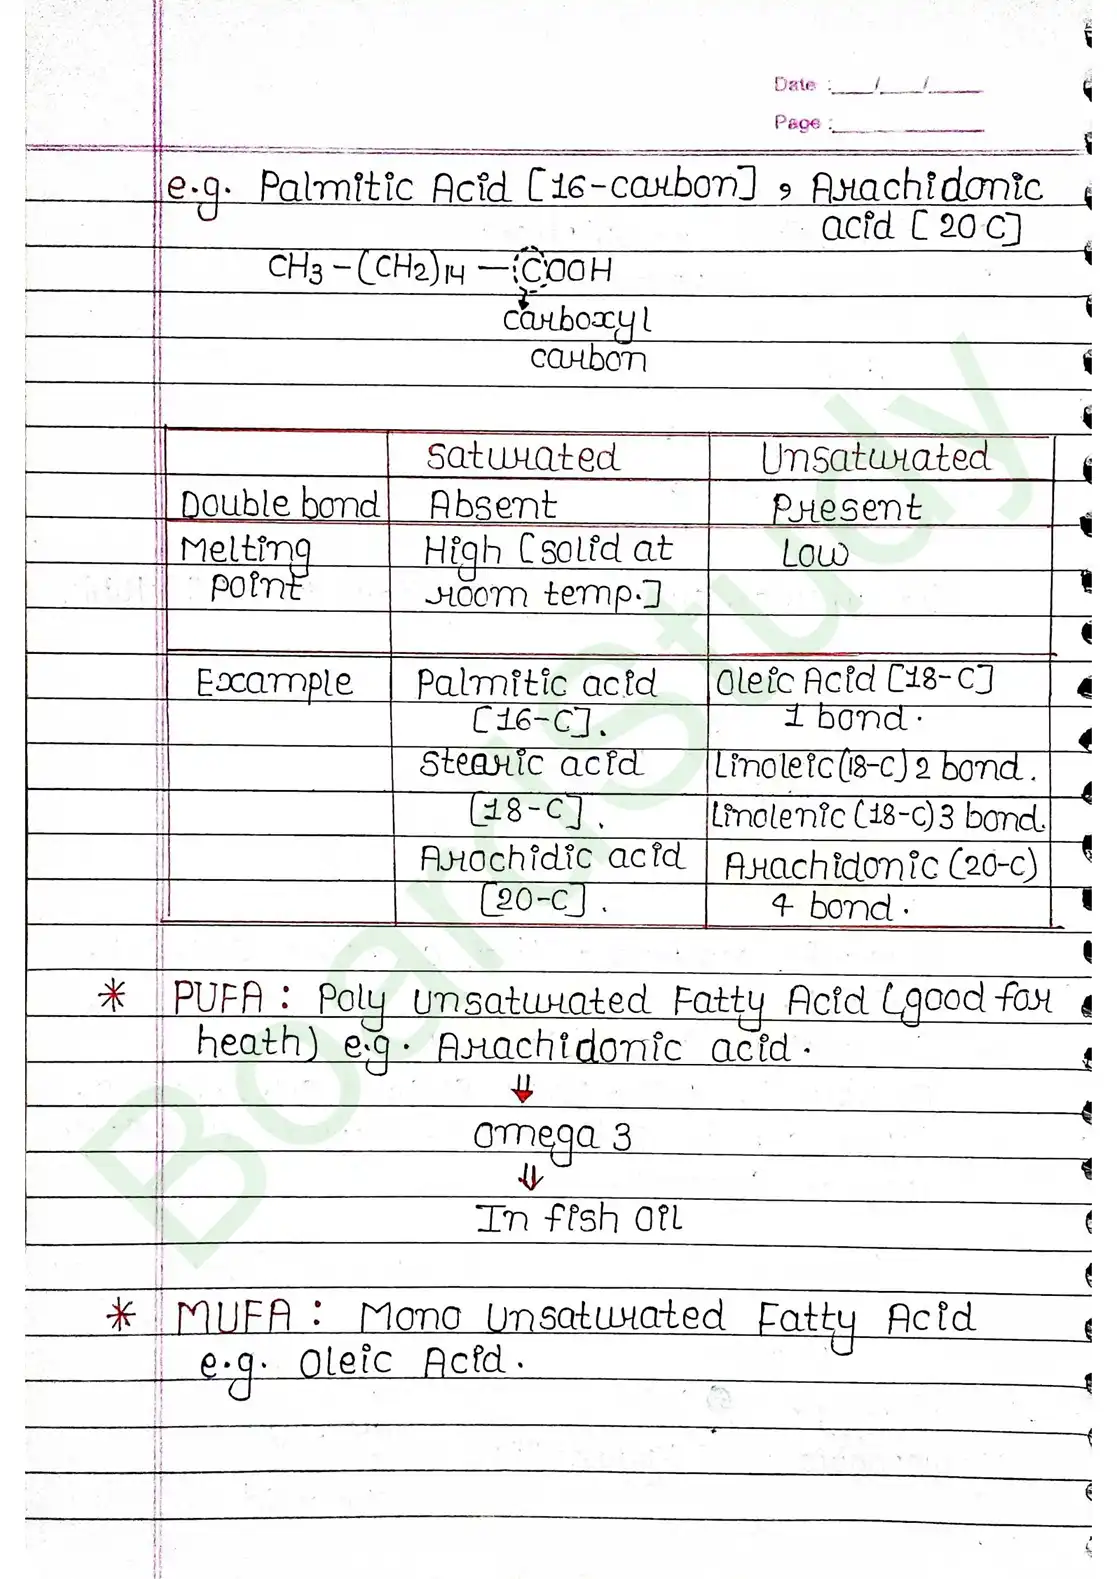 Date : __/__/__
Page : ______
e.g. Palmitic Acid [16-carbon], Arachidonic
acid [20 C]
CH3 – (CH2)14 — COOH
carboxyl
carbon
Saturated Unsaturated
Double bond Absent Present
Melting High [solid at Low
point room temp.]
Example Palmitic acid Oleic Acid [18-C]
[16-C]. 1 bond.
Stearic acid Linoleic (18-C) 2 bond.
[18-C]. Linolenic (18-C) 3 bond.
Arochidic acid Arachidonic (20-C)
[20-C]. 4 bond.
* PUFA : Poly Unsaturated Fatty Acid (good for
heath) e.g. Arachidonic acid.
⇓
omega 3
⇓
In fish oil
* MUFA : Mono Unsaturated Fatty Acid
e.g. Oleic Acid.
BoardStudy